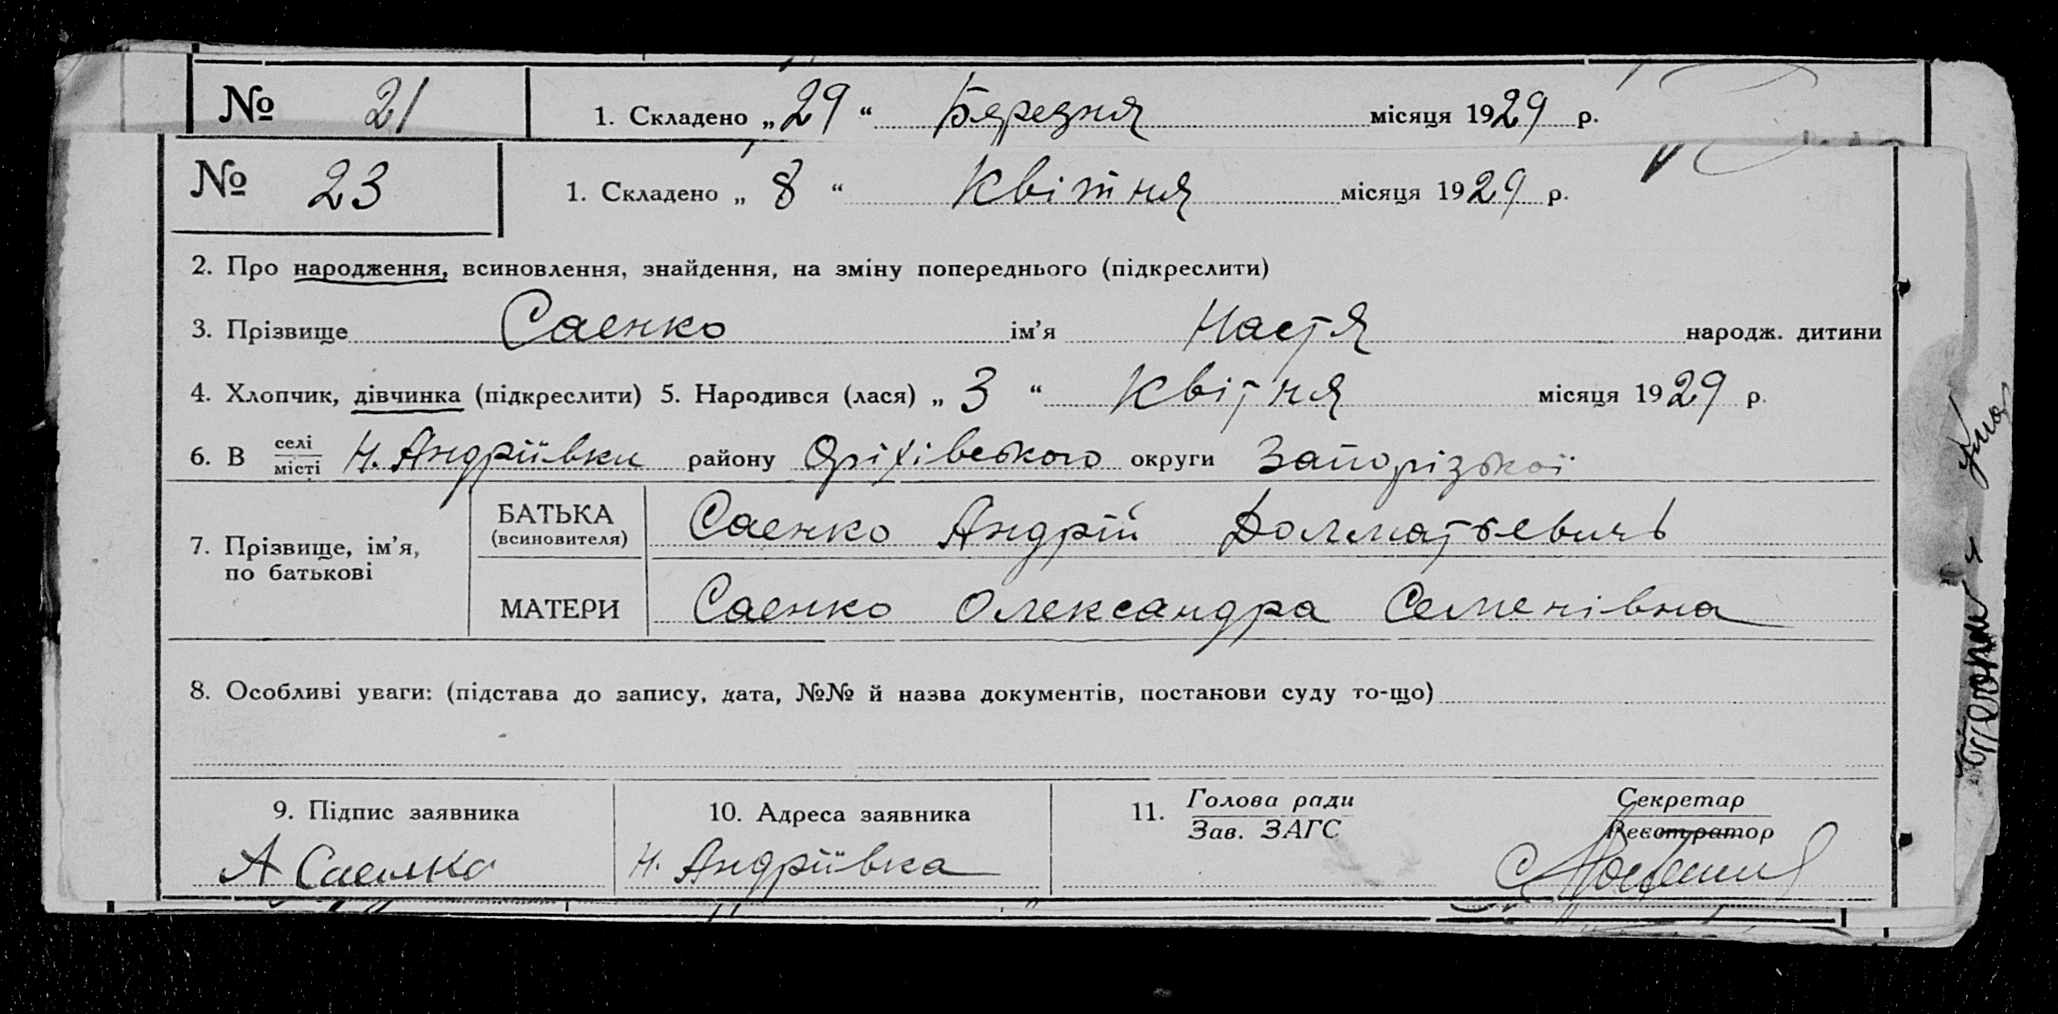 № 21 1. Складено „29“ Березня місяця 1929 р.
№ 23 1. Складено „8“ Квітня місяця 1929 р.
2. Про народження, всиновлення, знайдення, на зміну попереднього (підкреслити)
3. Прізвище Саенко ім'я Настя народж. дитини
4. Хлопчик, дівчинка (підкреслити) 5. Народився (лася) „3“ Квітня місяця 1929 р.
6. В селі місті Н. Андріївки району Оріхівського округи Запорізької
7. Прізвище, ім'я, по батькові
БАТЬКА (всиновителя) Саенко Андрій Долматьевичь
МАТЕРИ Саенко Олександра Семенівна
8. Особливі уваги: (підстава до запису, дата, №№ й назва документів, постанови суду то-що)
9. Підпис заявника 10. Адреса заявника 11. Голова ради Секретар
Зав. ЗАГС Реєстратор
А Саенко Н. Андріівка